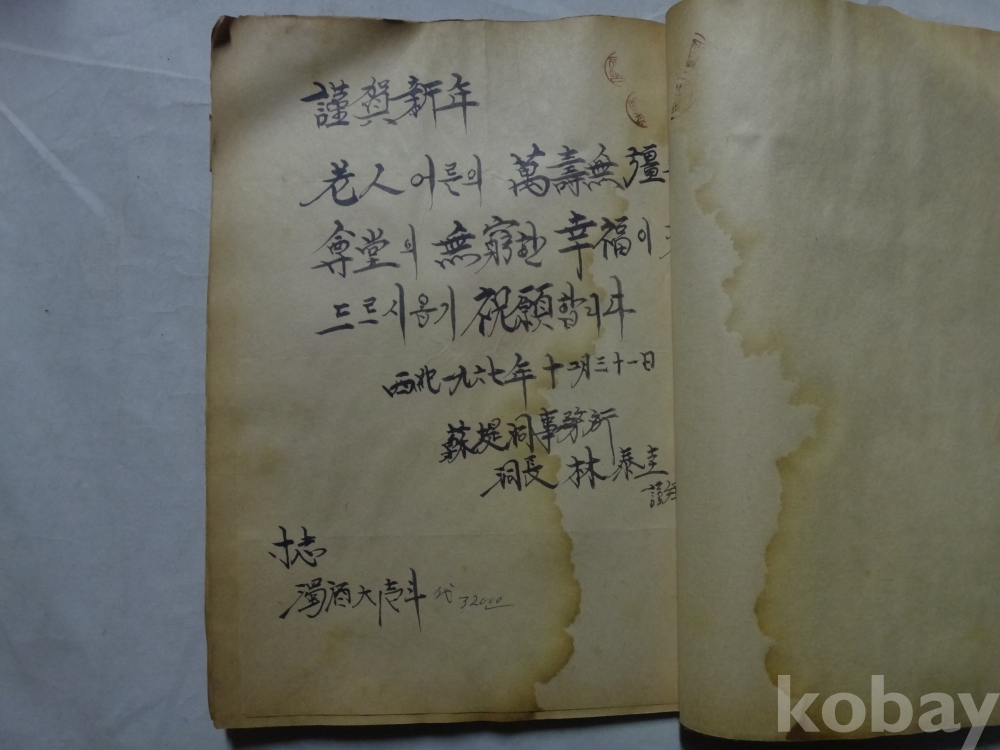 謹賀新年
老人 어른의 萬壽無疆
尊堂의 無窮한 幸福이
드르시옵기 祝願합니다
西紀一九六七年 十二月三十一日
蘇堤洞事務所
洞長 林泰圭
謹
寸志
濁酒大壱斗 代 320.00
kobay